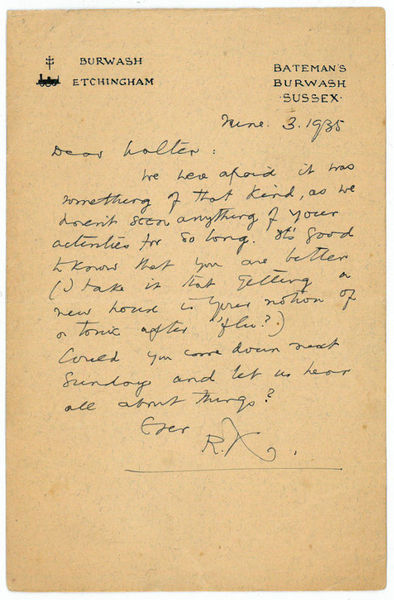 BURWASH
ETCHINGHAM
BATEMAN'S
BURWASH
·SUSSEX·
June. 3. 1935
Dear Walter:
We were afraid it was
something of that kind, as we
haven't seen anything of your
activities for so long. It's good
to know that you are better
(I take it that getting a
new house is your notion of
a tonic after 'flu?.)
Could you come down next
Sunday and let us hear
all about things?
Ever
R.K.